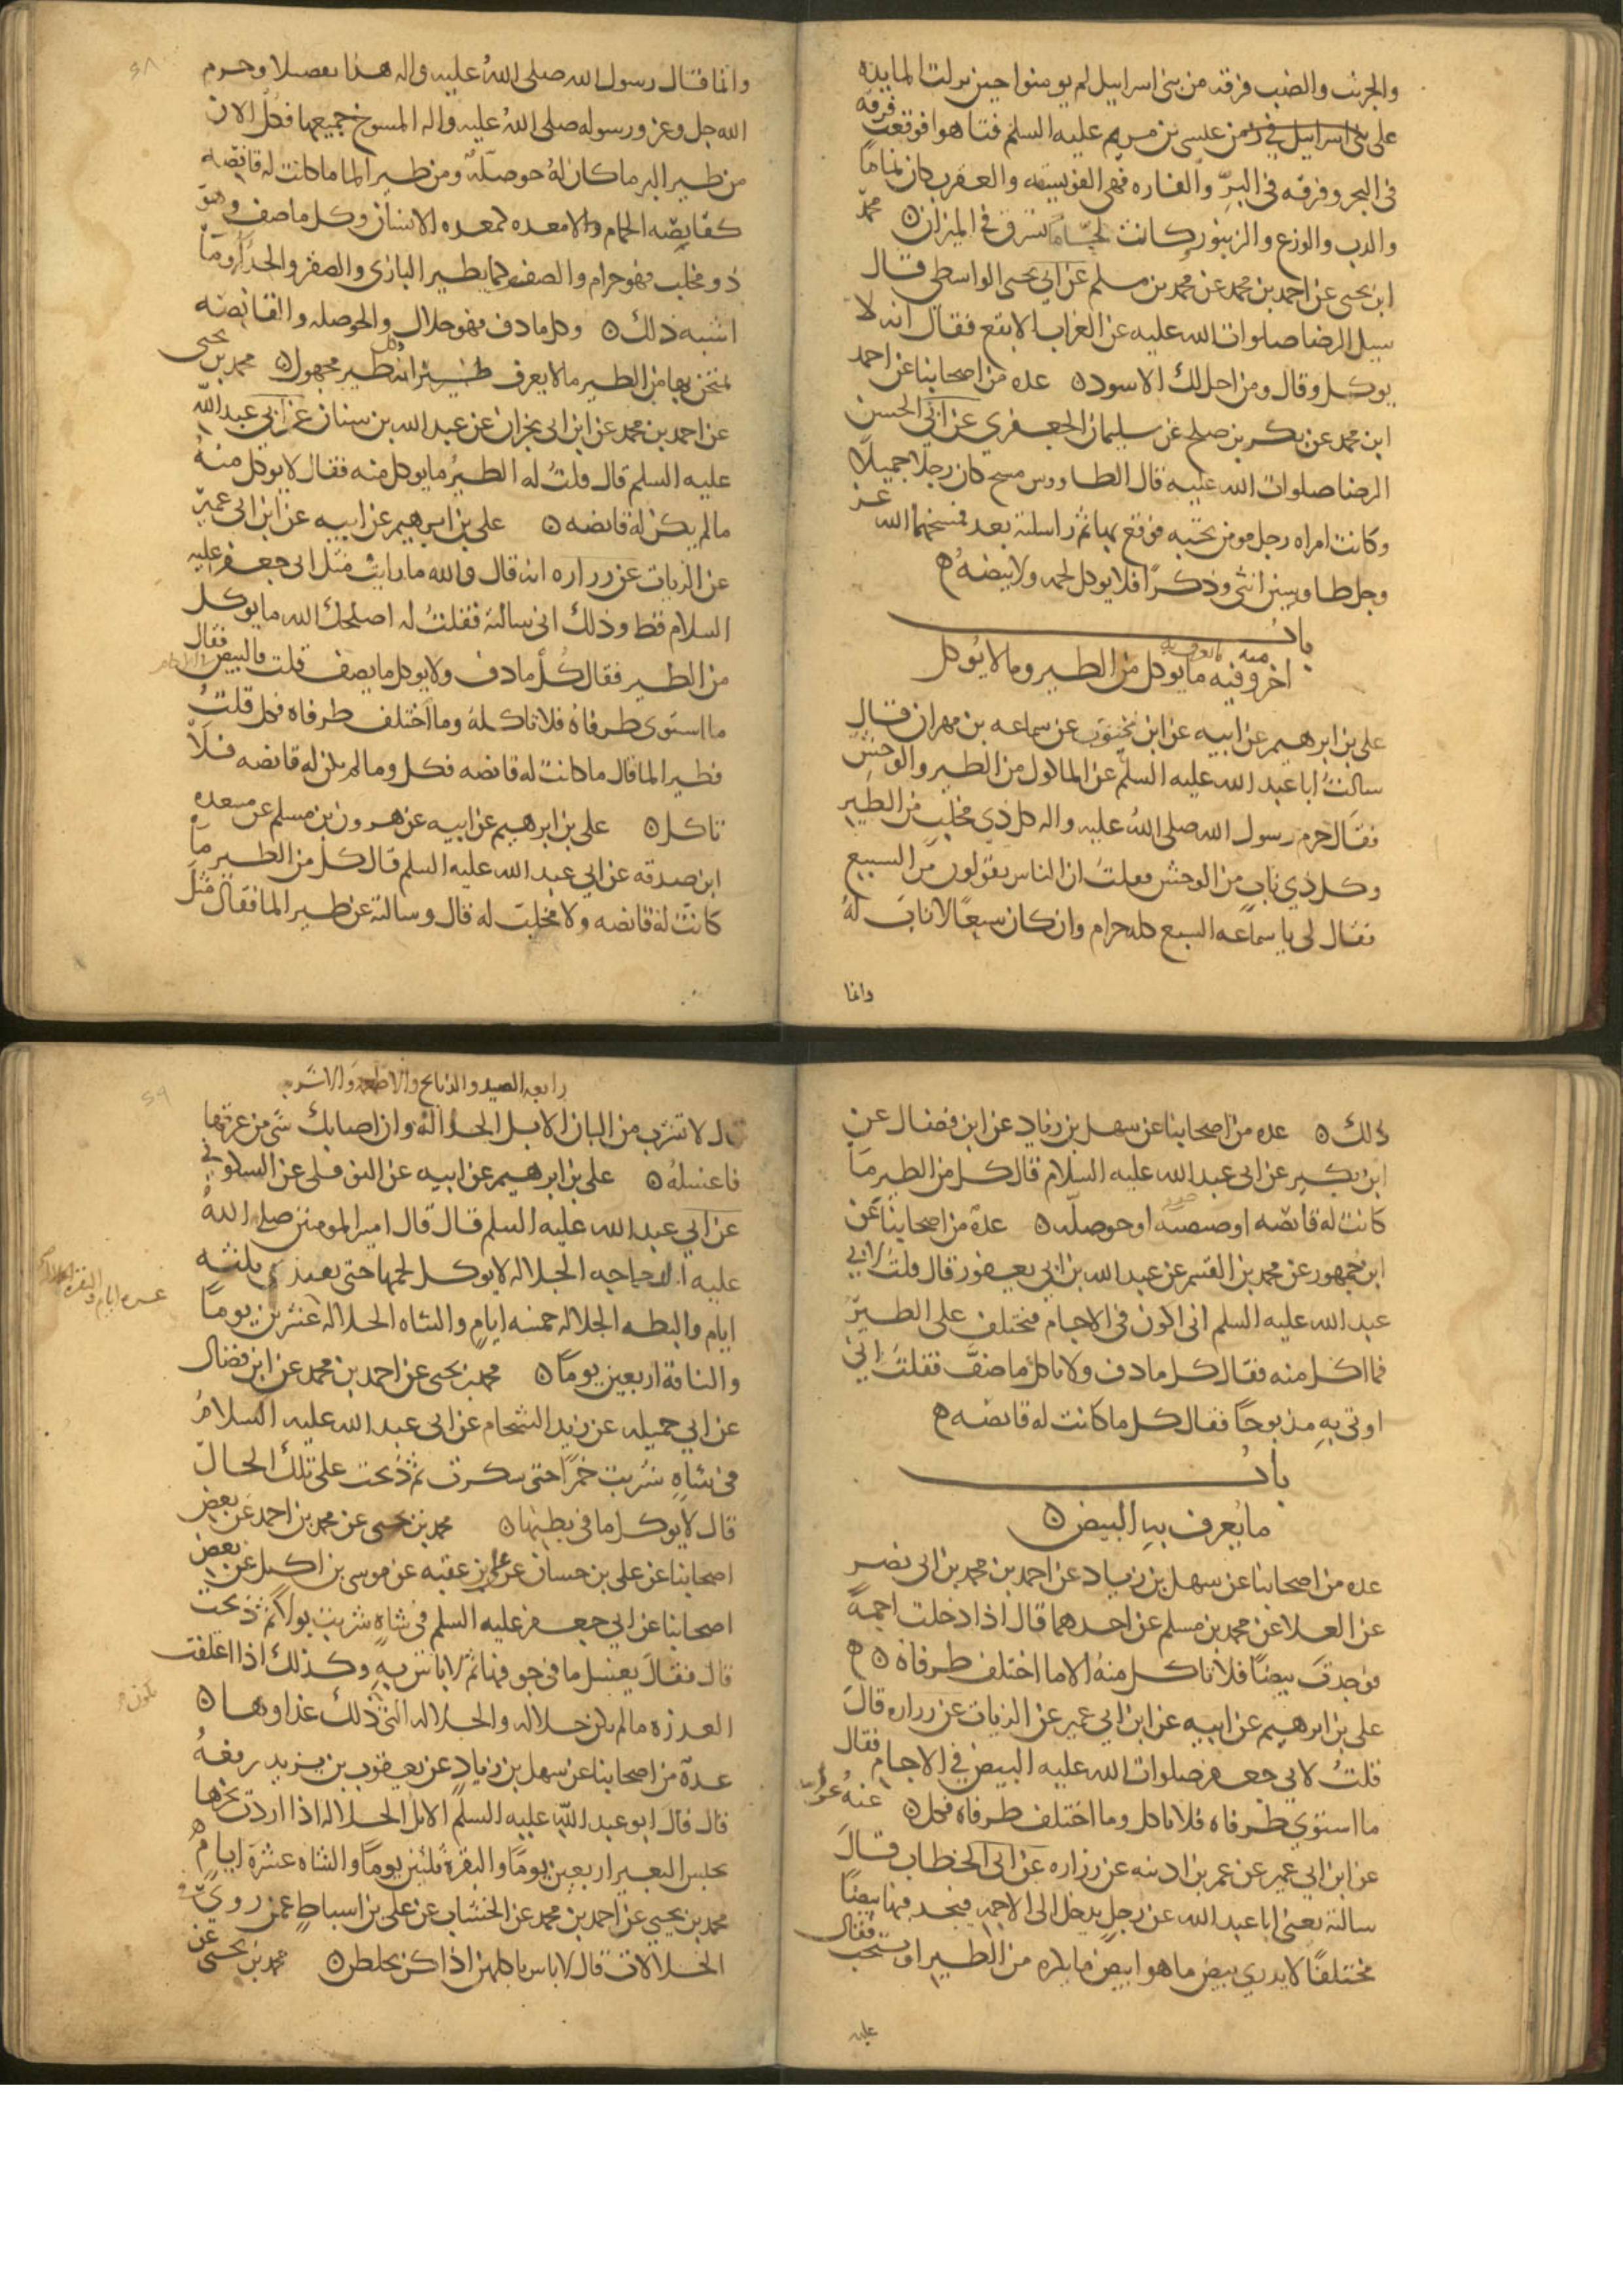 والجريث والضب فرقة من بنى اسراييل لم يومنوا حين نزلت المايده
على بنى اسراييل في زمن عيسى بن مريم عليه السلم فتاهوا فوقعت فرقه
فى البحر وفرقه فى البرّ والفاره فهى الفويسقه والعقرب كان نماما
والدب والوزع والزنبور كانت لحّاما يسرق فى الميزان ۞ محمّد
ابن يحيى عن احمد بن محمد عن محمد بن مسلم عن ابي يحيى الواسطى قال
سيل الرضا صلوات الله عليه عن الغراب الابقع فقال انه لا
يوكل وقال ومن احل لك الاسود ۞ عده من اصحابنا عن احمد
ابن محمد عن بكر بن صلح عن سليمان الجعفري عن ابى الحسن
الرضا صلوات الله عليه قال الطاووس مسخ كان رجلا جميلا
وكانت امراه رجل مومن تحبه فوقع بها ثم راسلته بعد فمسخهما الله عز
وجل طاوسين انثى وذكرًا فلا يوكل لحمه ولا بيضهُ ه
بابُ
باب منه
اخر وفيه ما يوكل من الطير وما لا يُوكل
على بن ابرهيم عن ابيه عن ابن محبوب عن سماعه بن مهران قال
سالتُ ابا عبد الله عليه السلم عن الماكول من الطير والوحش
فقال حرم رسول الله صلى اللهُ عليه واله كل ذى مخلب من الطير
وكل ذي ناب من الوحش فقلتُ ان الناس يقولون من السبع
فقال لى يا سماعه السبع كله حرام وان كان سبعًا لا ناب لهُ
وانما
وانما قال رسول الله صلى اللهُ عليه واله هذا تفصيلا وحرم
الله جل وعز ورسوله صلى اللهُ عليه واله المسوخ جميعها فكل الان
من طير البر ما كان لهُ حوصلهٌ ومن طير الما ما كانت له قانصه
كقانصه الحمام ولا معده كمعده الانسان وكل ما صف وهو
ذو مخلب فهو حرام والصفو كما يطير البازى والصقر والحداه وما
اشبه ذلك ۞ وكل ما دف فهو حلال والحوصله والقانصه
يمتحن بها من الطير ما لا يعرف طيرانه وكل طير مجهول ۞ محمد بن يحيى
عن احمد بن محمد عن ابن ابى نجران عن عبد الله بن سنان عن ابى عبد الله
عليه السلم قال قلتُ له الطيرُ ما يوكل منه فقال لا يوكل منهُ
مالم يكن لهُ قانصه ۞ على بن ابرهيم عن ابيه عن ابن ابى عمير
عن الزيات عن زراره انه قال والله ما رايت مثل ابى جعفر عليه
السلام قط وذلك انى سالتهُ فقلتُ له اصلحك الله ما يوكل
من الطير فقال كُل ما دف ولا يوكل ما يصف قلت فالبيض فقال
ما استوى طرفاهُ فلا تاكلهُ وما اختلف طرفاه فكل قلتُ
فطير الما قال ما كانت له قانصه فكل وما لم يكن له قانصه فلا
تاكل ۞ على بن ابرهيم عن ابيه عن هرون بن مسلم عن مسعده
ابن صدقه عن ابى عبد الله عليه السلم قال كل من الطير ما
كانت له قانصه ولا مخلب له قال وسالته عن طير الما فقال مثل
ذلك ۞ عده من اصحابنا عن سهل بن زياد عن ابن فضال عن
ابن بكير عن ابى عبد الله عليه السلام قال كل من الطير ما
كانت له قانصه او صيصيه او حوصله ۞ عدة من اصحابنا عن
ابن جمهور عن محمد بن القسم عن عبد الله بن ابى يعفور قال قلتُ لابى
عبد الله عليه السلم انى اكون فى الاجام فيختلف على الطير
فما اكل منه فقال كل ما دف ولا تاكل ما صفّ فقلتُ انى
اوتى بهِ مذبوحًا فقال كل ما كانت له قانصه ه
بابُ
ما يُعرف بهِ البيض ۞
عده من اصحابنا عن سهل بن زياد عن احمد بن محمد بن ابى نصر
عن العلا عن محمد بن مسلم عن احدهما قال اذا دخلت اجمةً
فوجدتَ بيضًا فلا تاكل منهُ الا ما اختلف طرفاهُ ۞ ه
على بن ابرهيم عن ابيه عن ابن ابي عمير عن الزيات عن زراره قال
قلتُ لابي جعفر صلوات الله عليه البيض في الاجام فقال
ما استوي طرفاه فلا تاكل وما اختلف طرفاه فكل ۞ عنهُ عن ابيه
عن ابن ابي عمير عن عمر بن اذينه عن زراره عن ابى الخطاب قال
سالته يعنى ابا عبد الله عن رجل يدخل الى الاجمه فيجد فيها بيضًا
مختلفًا لا يدري بيض ما هو ابيض ما يكره من الطير او يستحب فقال
عليه
رابعه الصيد والذبايح والاطعمه والاشربه
قال لا تشرب من البان الابل الجلالهُ وان اصابك شى من عرقها
فاغسلهُ ۞ على بن ابرهيم عن ابيه عن النوفلى عن السكونى
عن ابي عبد الله عليه السلم قال قال امير المومنين صلى اللهُ
عليه الدجاجه الجلاله لا يوكل لحمها حتى تغتذى ثلثه
ايام والبطه الجلاله خمسه ايامٍ والشاه الجلاله عشرين يومًا
والناقة اربعين يومًا ۞ محمد بن يحيى عن احمد بن محمد عن ابن فضال
عن ابي جميله عن زيد الشحام عن ابى عبد الله عليه السلامُ
فى شاهٍ شربت خمرًا حتى سكرت ثم ذُبحت على تلك الحال
قال لا يوكل ما فى بطنها ۞ محمد بن يحيى عن محمد بن احمد عن بعض
اصحابنا عن على بن حسان عن على بن عقبه عن موسى بن اكيل عن بعض
اصحابنا عن ابي جعفر عليه السلم فى شاهٍ شربت بولًا ثم ذبحت
قال فقال يغسل ما فى جوفها ثم لا باس بهِ وكذلك اذا اعتلفت
العذره مالم يكن جلاله والجلاله التى ذلك غذاوها ۞
عدة من اصحابنا عن سهل بن زياد عن يعقوب بن يزيد رفعهُ
قال قال ابو عبد الله عليه السلم الابل الجلاله اذا اردت نحرها
يحبس البعير اربعين يومًا والبقره ثلثين يومًا والشاه عشرة ايام ه
محمد بن يحيى عن احمد بن محمد عن الخشاب عن على بن اسباط عمن روي فى
الجلالات قال لا باس باكلهن اذا كن يخلطن ۞ محمد بن يحيى عن